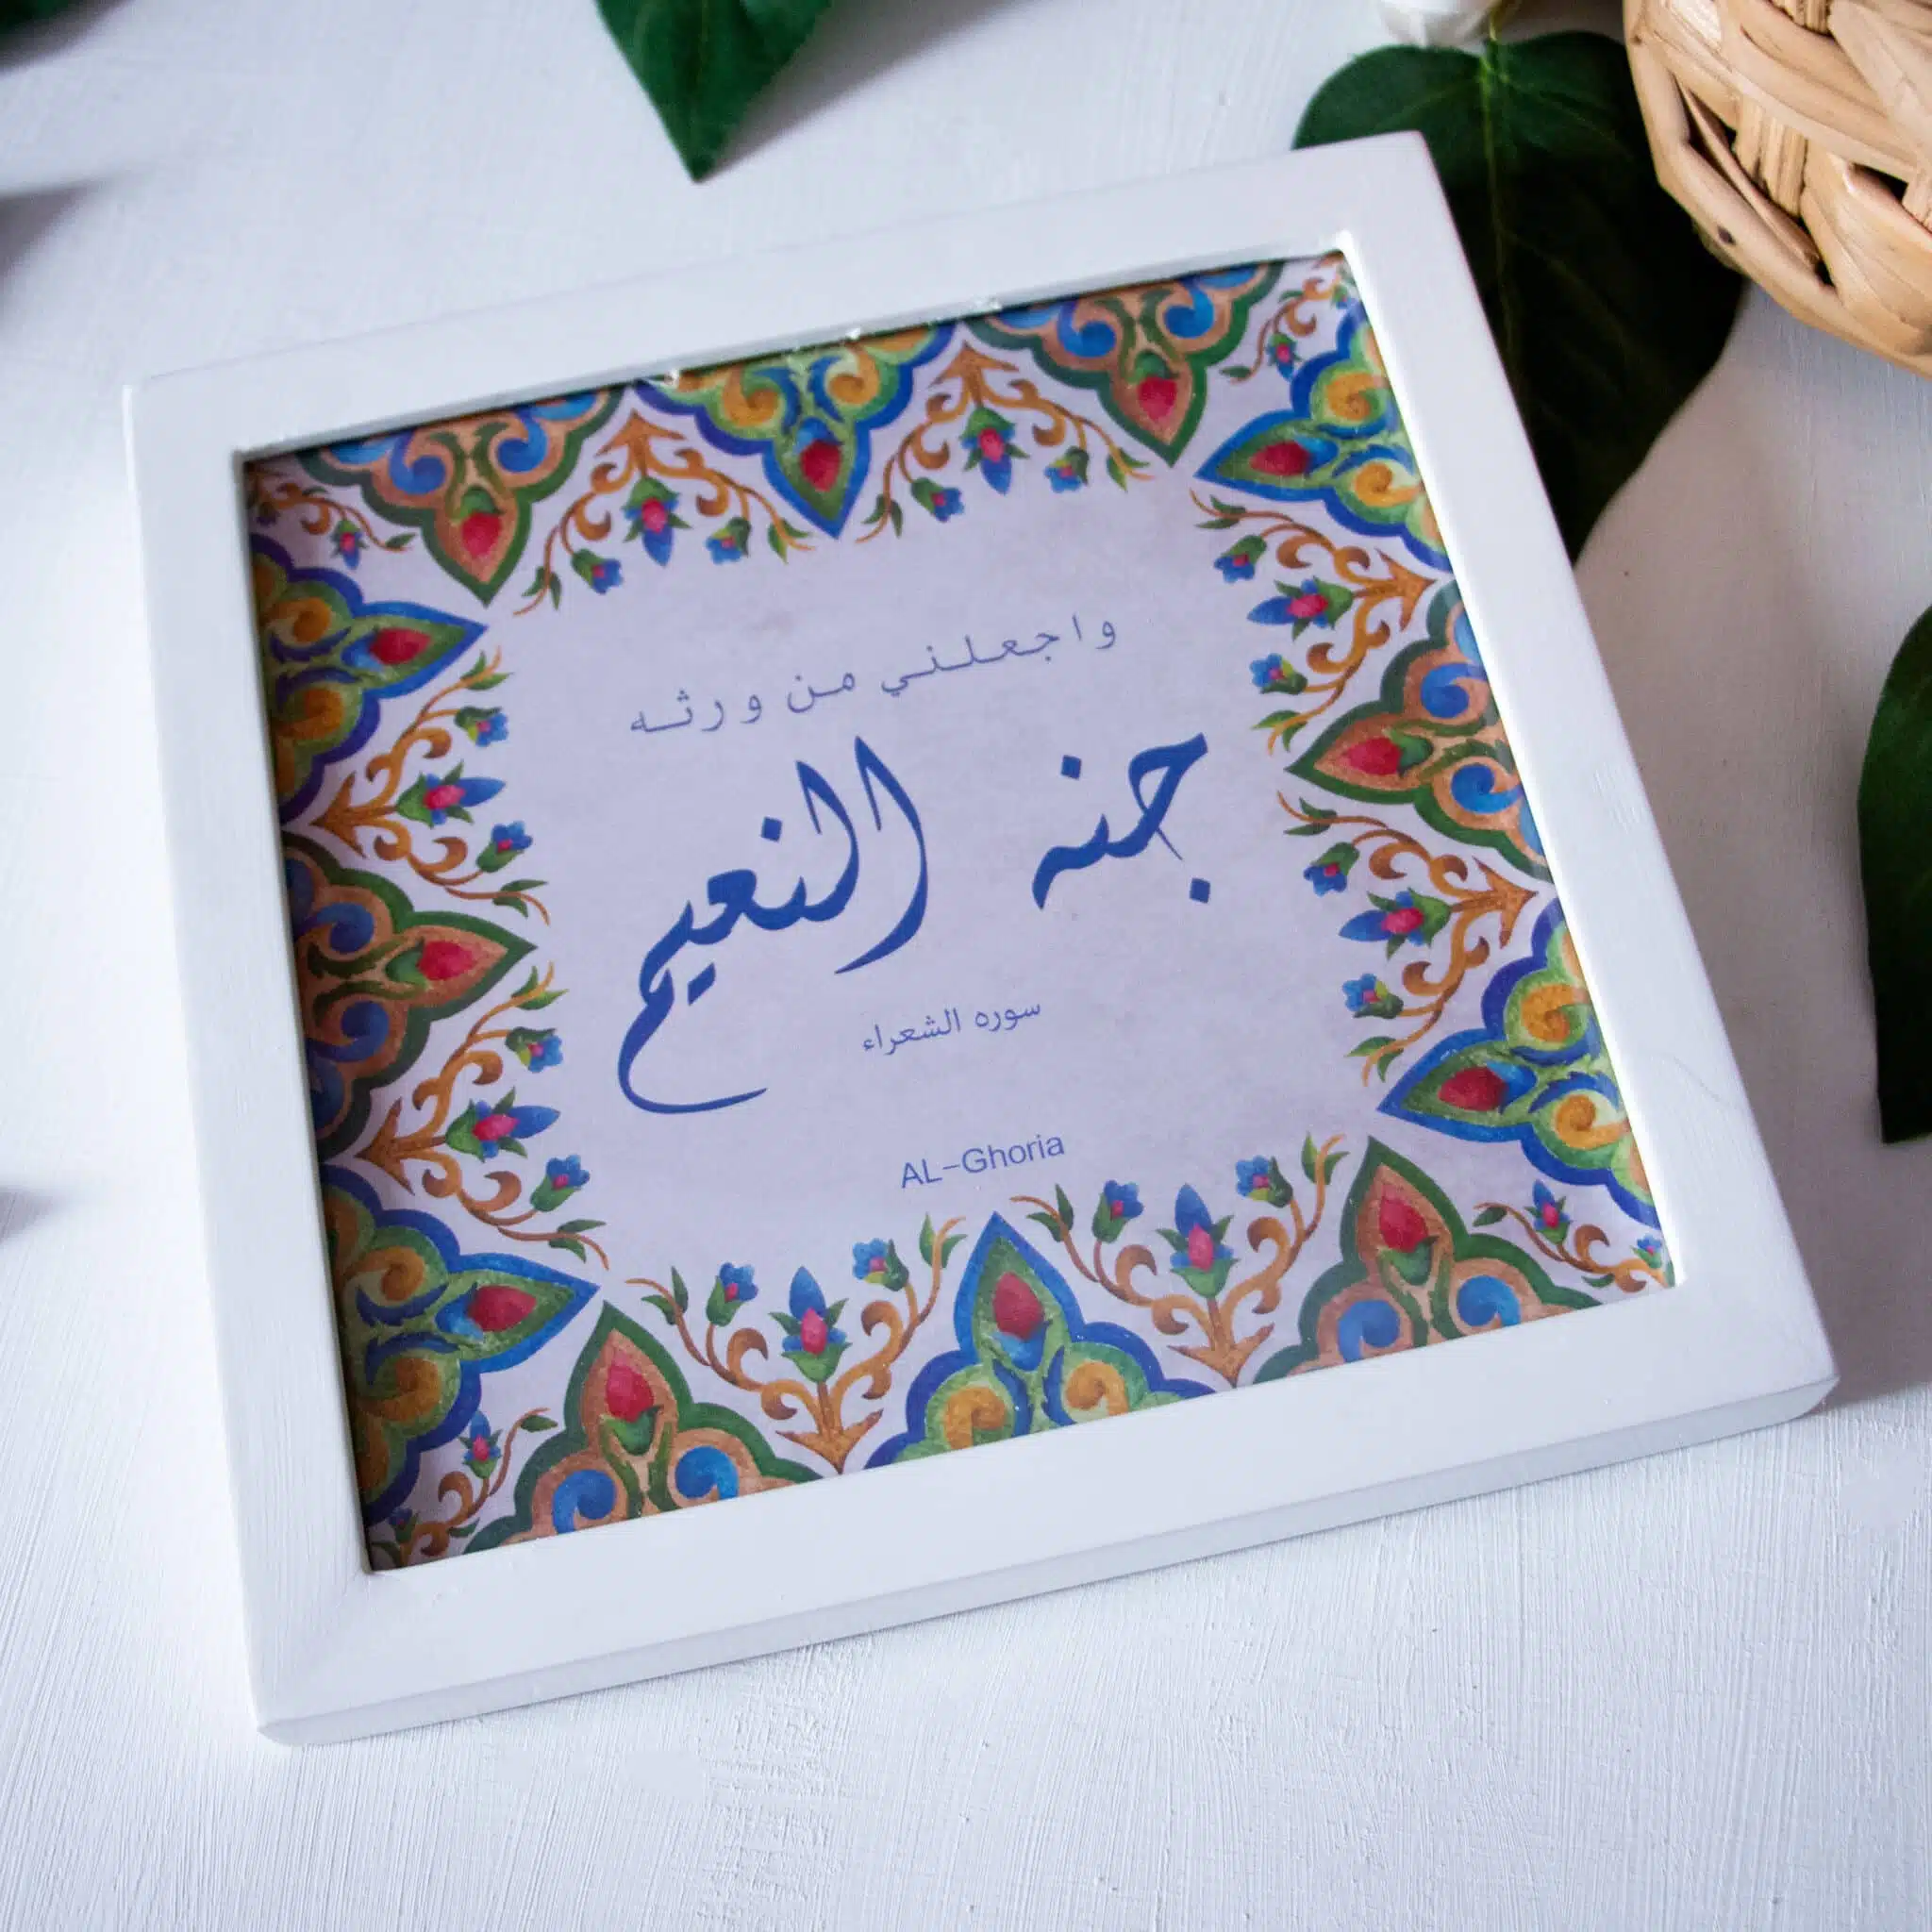 واجعلني من ورثه
جنه النعيم
سوره الشعراء
AL-Ghoria